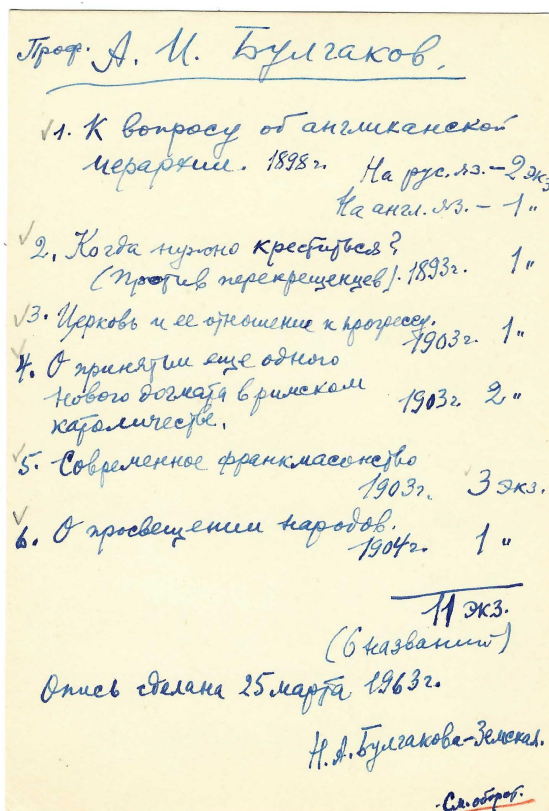 Проф. А. И. Булгаков.
1. К вопросу об англиканской
иерархии. 1898 г.
На рус. яз. – 2 экз
На англ. яз. – 1 "
2. Когда нужно креститься?
(Против перекрещенцев). 1893 г. 1 "
3. Церковь и ее отношение к прогрессу.
1903 г. 1 "
4. О принятии еще одного
нового догмата в римском
католичестве. 1903 г. 2 "
5. Современное франкмасонство
1903 г. 3 экз.
6. О просвещении народов.
1904 г. 1 "
11 экз.
(6 названий)
Опись сделана 25 марта 1963 г.
Н. А. Булгакова-Земская.
См. оборот.